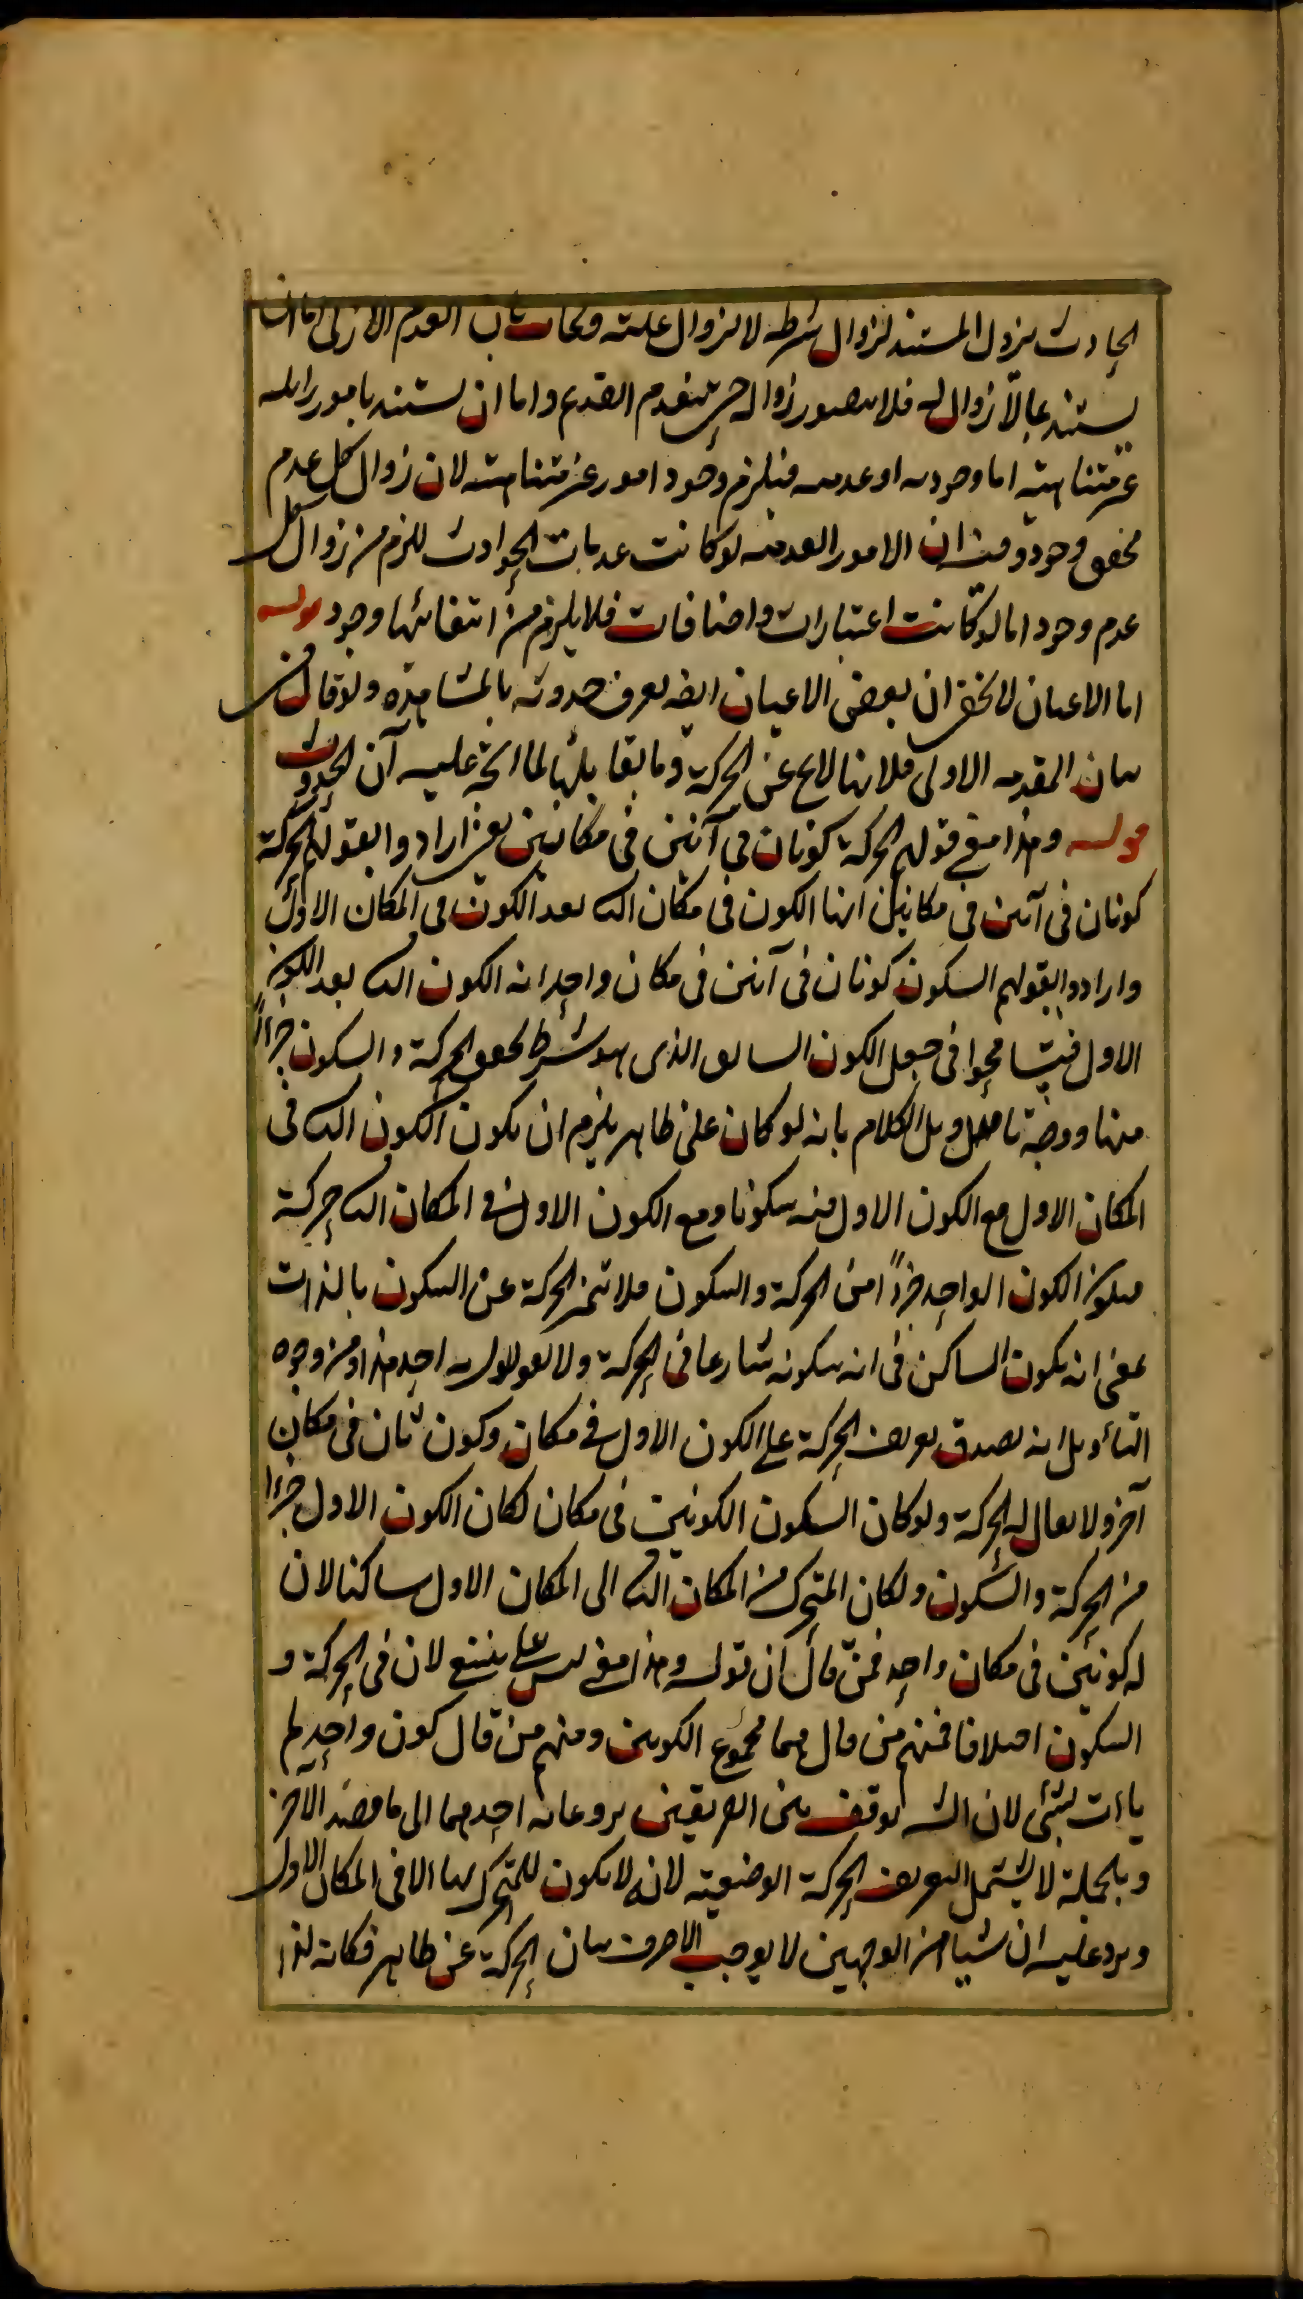 الحادث يزول المستند لزوال شرطه لا لزوال علته ويجاب بان العدم الازلى اما ان
يستند بما لا زوال له فلا يتصور زواله حتى ينعدم القديم واما ان يستند بامور
غير متناهية اما وجودية او عدمية فيلزم وجود امور غير متناهية لان زوال كل عدم
محقق وجود وفيه ان الامور العدمية لو كانت عدمات الحوادث للزم من زوال كل
عدم وجود اما لو كانت اعتبارات واضافات فلا يلزم من انتفائها وجود قوله
اما الاعيان لا يخفى ان بعض الاعيان ايضا يعرف حدوثه بالمشاهدة ولو قال فى
بيان المقدمة الاولى فلانها لا يخ عن الحركة وما يقابلها لما اتجه عليه آن الحدوث
قوله وهذا معنى قولهم الحركة كونان فى آنين فى مكانين يعنى ارادوا بقولهم الحركة
كونان فى آنين فى مكانين انها الكون فى مكان الثانى بعد الكون فى المكان الاول
وارادوا بقولهم السكون كونان فى آنين فى مكان واحد انه الكون الثانى بعد الكون
الاول فتسامحوا فى جعل الكون السابق الذى هو شرط تحقق الحركة والسكون جزءا
منها ووجه تأويل الكلام بانه لو كان على ظاهره يلزم ان يكون الكون الثانى فى
المكان الاول مع الكون الاول منه سكونا ومع الكون الاول فى المكان الثانى حركة
فيكون الكون الواحد جزءا من الحركة والسكون فلا تتميز الحركة عن السكون بالذات
بمعنى انه يكون الساكن فى ان سكونه شارعا فى الحركة ولا يقول به احد هذا ومن وجوه
التأويل انه يصدق تعريف الحركة على الكون الاول فى مكان وكون ثان فى مكان
آخر ولا يقال له الحركة ولو كان السكون الكونين فى مكان لكان الكون الاول جزءا
من الحركة والسكون ولكان المتحرك من المكان الثانى الى المكان الاول ساكنا لان
له كونين فى مكان واحد فمن قال ان قوله وهذا معنى ليس على ما ينبغى لان فى الحركة و
السكون اختلافا فمنهم من قال هما مجموع الكونين ومنهم من قال كون واحد لم
يأت بشئ لان الش يوقف بين الفريقين احدهما الى ما قصد الاخر
وبالجملة لا يشتمل التعريف الحركة الوضعية لانه لا يكون للمتحرك بها الا فى المكان الاول
ويرد عليه ان شيئا من الوجهين لا يوجب الا صرف بيان الحركة عن ظاهره فكانه لذا